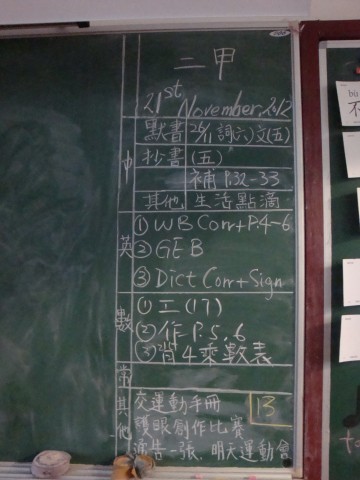 二甲
21st November, 2012
中
默書 26/11 詞(六)文(五)
抄書 (五)
補 P.32-33
其他 生活點滴
英
① WB Corr+P.4-6
② GE B
③ Dict Corr+Sign
數
① 工(17)
② 作 P.5, 6
③ 背4乘數表
常
其他
交運動手冊
護眼創作比賽
通告一張, 明天運動會
13
bù